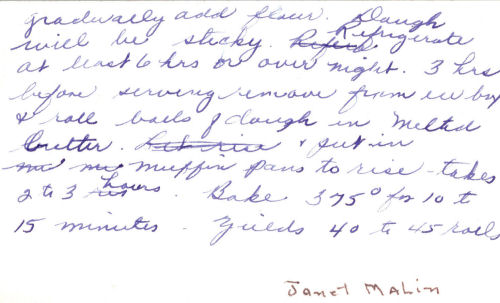 gradually add flour. Dough
will be sticky. Refrigerate
at least 6 hrs or over night. 3 hrs
before serving remove from ice box
& roll balls of dough in melted
butter. Let rise & put in
muffin pans to rise - takes
2 to 3 hours. Bake 375° for 10 to
15 minutes. Yields 40 to 45 rolls
Janet Malin